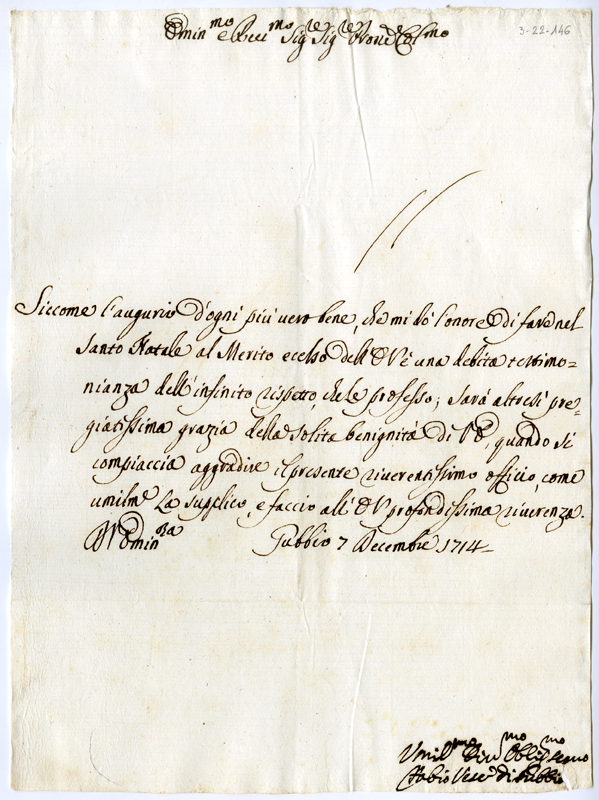 Emin.mo e Rev.mo Sig.re Sig.re Pron.e Col.mo
3-22-146
Siccome l'augurio d'ogni più vero bene, che mi dò l'onore di fare nel
Santo Natale al Merito eccelso dell'E V è una debita testimo=
nianza dell'infinito rispetto, che le professo; sarà altresì pre=
giatissima grazia della solita benignità di V E, quando si
compiaccia aggradire il presente riverentissimo officio, come
umilm.e La supplico, e faccio all'E V profondissima riverenza.
Gubbio 7 Decembre 1714=
Umil.mo Div.mo Obblig.mo
Fabio Vesc.o di Gubbio